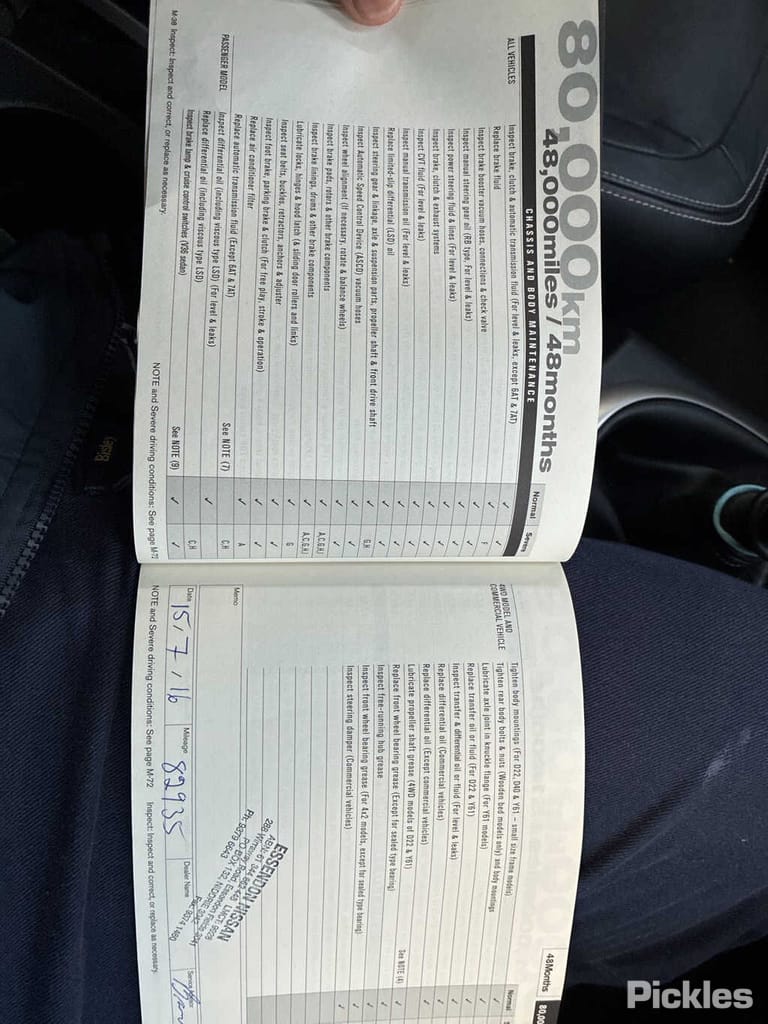 80,000km
48,000miles / 48months
CHASSIS AND BODY MAINTENANCE
Normal Severe
ALL VEHICLES
Inspect brake, clutch & automatic transmission fluid (For level & leaks, except 6AT & 7AT) ✓
Replace brake fluid ✓ ✓
Inspect brake booster vacuum hoses, connections & check valve ✓ F
Inspect manual steering gear oil (RB type, For level & leaks) ✓ ✓
Inspect power steering fluid & lines (For level & leaks) ✓ ✓
Inspect brake, clutch & exhaust systems ✓ ✓
Inspect CVT fluid (For level & leaks) ✓ ✓
Inspect manual transmission oil (For level & leaks) ✓ ✓
Replace limited-slip differential (LSD) oil ✓ ✓
Inspect steering gear & linkage, axle & suspension parts, propeller shaft & front drive shaft ✓ G,H
Inspect Automatic Speed Control Device (ASCD) vacuum hoses ✓ ✓
Inspect wheel alignment (If necessary, rotate & balance wheels) ✓ ✓
Inspect brake pads, rotors & other brake components ✓ A,C,G,H
Inspect brake linings, drums & other brake components ✓ A,C,G,H
Lubricate locks, hinges & hood latch (& sliding door rollers and links) ✓ G
Inspect seat belts, buckles, retractors, anchors & adjuster ✓ ✓
Inspect foot brake, parking brake & clutch (For free play, stroke & operation) ✓ ✓
Replace air conditioner filter ✓ A
PASSENGER MODEL
Replace automatic transmission fluid (Except 6AT & 7AT)
Inspect differential oil (including viscous type LSD) (For level & leaks) See NOTE (7) C,H
Replace differential oil (including viscous type LSD) ✓
Inspect brake lamp & cruise control switches (V36 sedan) See NOTE (9) ✓ ✓
NOTE and Severe driving conditions: See page M-7
M-38 Inspect: Inspect and correct, or replace as necessary.
48Months
80,00
Normal
4WD MODEL AND
COMMERCIAL VEHICLE
Tighten body mountings (For D22, D40 & Y61 – small size frame models)
Tighten rear body bolts & nuts (Wooden bed models only) and body mountings ✓
Lubricate axle joint in knuckle flange (For Y61 models) ✓
Replace transfer oil or fluid (For D22 & Y61)
Inspect transfer & differential oil or fluid (For level & leaks) ✓
Replace differential oil (Commercial vehicles) ✓
Replace differential oil (Except commercial vehicles) ✓
Lubricate propeller shaft grease (4WD models of D22 & Y61) ✓
Replace front wheel bearing grease (Except for sealed type bearing) See NOTE (4) ✓
Inspect free-running hub grease ✓
Inspect front wheel bearing grease (For 4x2 models, except for sealed type bearing) ✓
Inspect steering damper (Commercial vehicles) ✓
Memo
ESSENDON NISSAN
Date 15/7/16 Mileage 82935 Dealer Name
NOTE and Severe driving conditions: See page M-72 Inspect: Inspect and correct, or replace as necessary.
Pickles